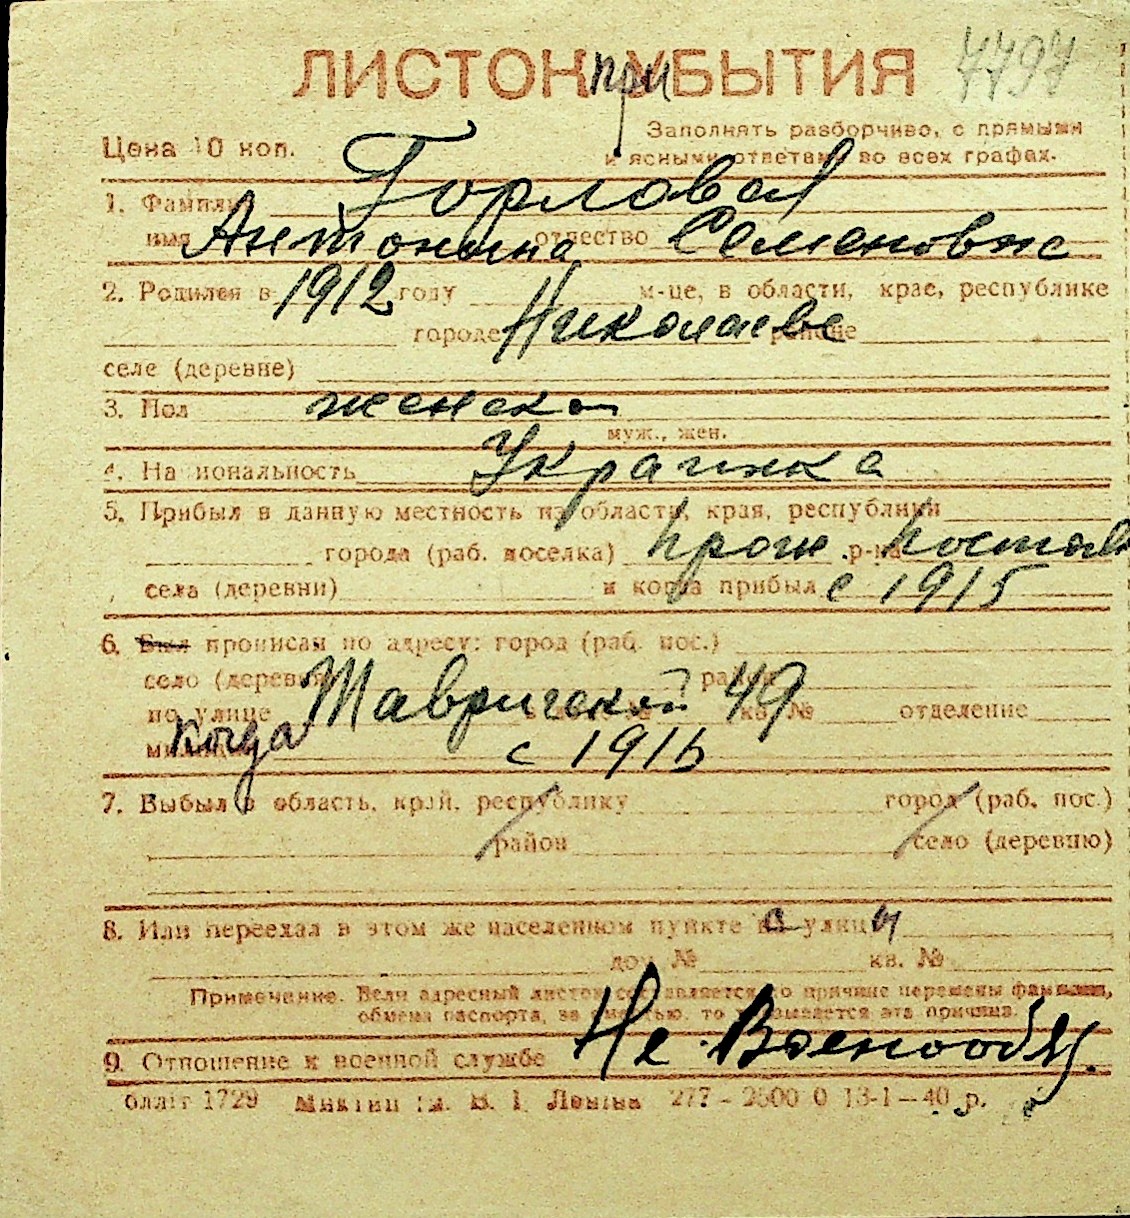 7797
ЛИСТОК при УБЫТИЯ
Цена 10 коп.
Заполнять разборчиво, с прямыми
и ясными ответами во всех графах.
1. Фамилия Горловая
имя Антонина отчество Семеновне
2. Родился в 1912 году м-це, в области, крае, республике
городе Николаеве районе
селе (деревне)
3. Пол женской
муж., жен.
4. Национальность Украинка
5. Прибыл в данную местность из области, края, республики
города (раб. поселка) прож. р-на постоян
села (деревни) и когда прибыл с 1915
6. Был прописан по адресу: город (раб. пос.)
село (деревня) район
по улице Таврической 49 кв. № отделение
милиции когда с 1916
7. Выбыл в область, край, республику город (раб. пос.)
район село (деревню)
8. Или переехал в этом же населенном пункте на улицы
дом № кв. №
Примечание. Если адресный листок составляется по причине перемены фамилии,
обмена паспорта, за смертью, то указывается эта причина.
9. Отношение к военной службе Не Военнообяз.
277 - 2500 0 13-1-40 р.